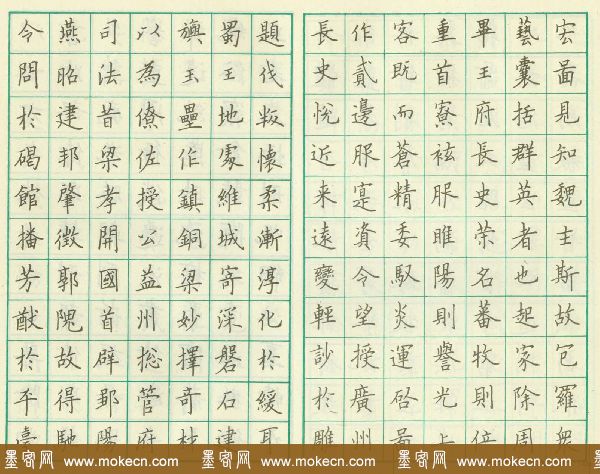 宏啚見知魏士斯故包羅衆
藝囊括群英者也起家除周
畢王府長史荣名蕃牧則位
重首寮袨服睢陽則譽光上
客既而蒼精委馭炎運啓啚
作貳邊服寔資令望授廣州
長史悅近来遠變輕訬於雕
題伐叛懷柔漸淳化於緩耳
蜀王地處維城寄深磐石建
旟玉壘作鎮銅梁妙擇奇材
以為僚佐授公益州総管府
司法昔梁孝開國首辟鄒陽
燕昭建邦肇徵郭隗故得馳
令問於碣館播芳猷於平臺
墨客网 www.mokecn.com 墨客网 www.mokecn.com 墨客网 www.mokecn.com